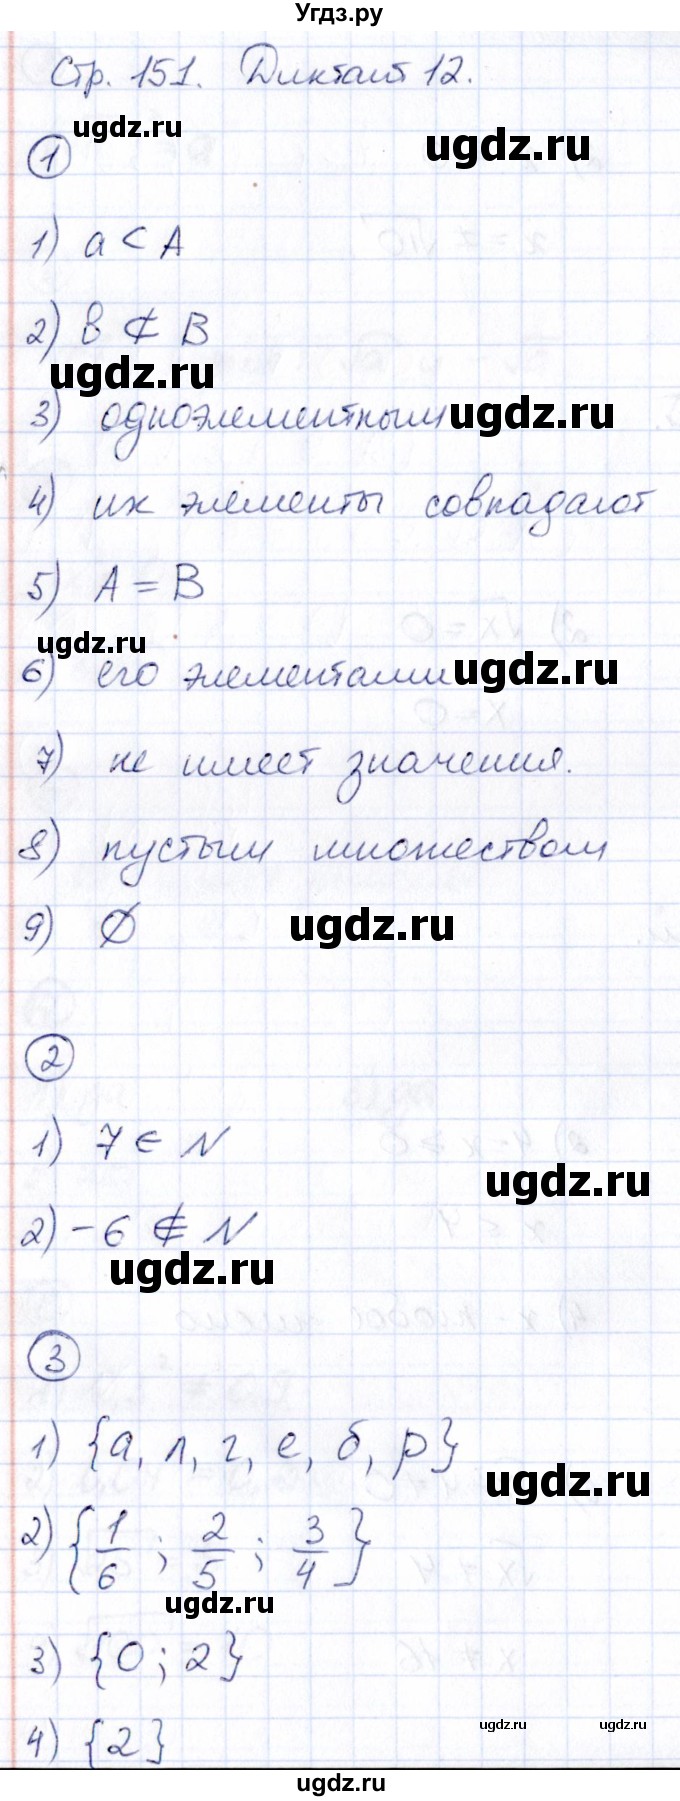 Угдз.ру
Стр. 151. Диктант 12.
ugdz.ru
ugdz.ru
1
1) a ⊂ A
2) в ⊄ B
ugdz.ru
3) одноэлементным
ugdz.ru
4) их элементы совпадают
5) A = B
ugdz.ru
6) его элементами
ugdz.ru
7) не имеет значения.
8) пустым множеством
9) ∅
ugdz.ru
2
1) 7 ∈ N
ugdz.ru
2) -6 ∉ N
ugdz.ru
3
1) {а, л, г, е, б, р}
ugdz.ru
2) {1/6 ; 2/5 ; 3/4}
ugdz.ru
3) {0 ; 2}
ugdz.ru ugdz.ru
4) {2}
ugdz.ru